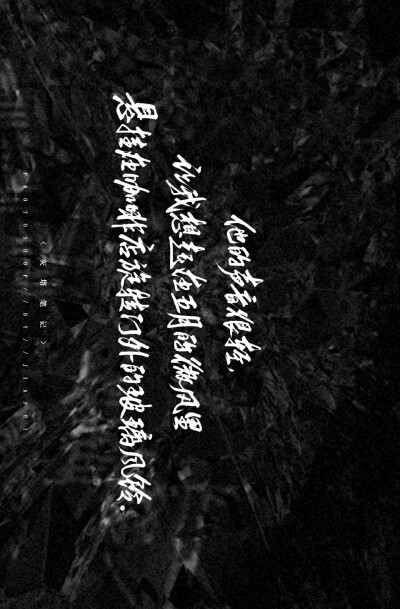 他的声音很轻，
让我想起在五月的微风里
悬挂在咖啡店旋转门外的玻璃风铃。
《灰塔笔记》